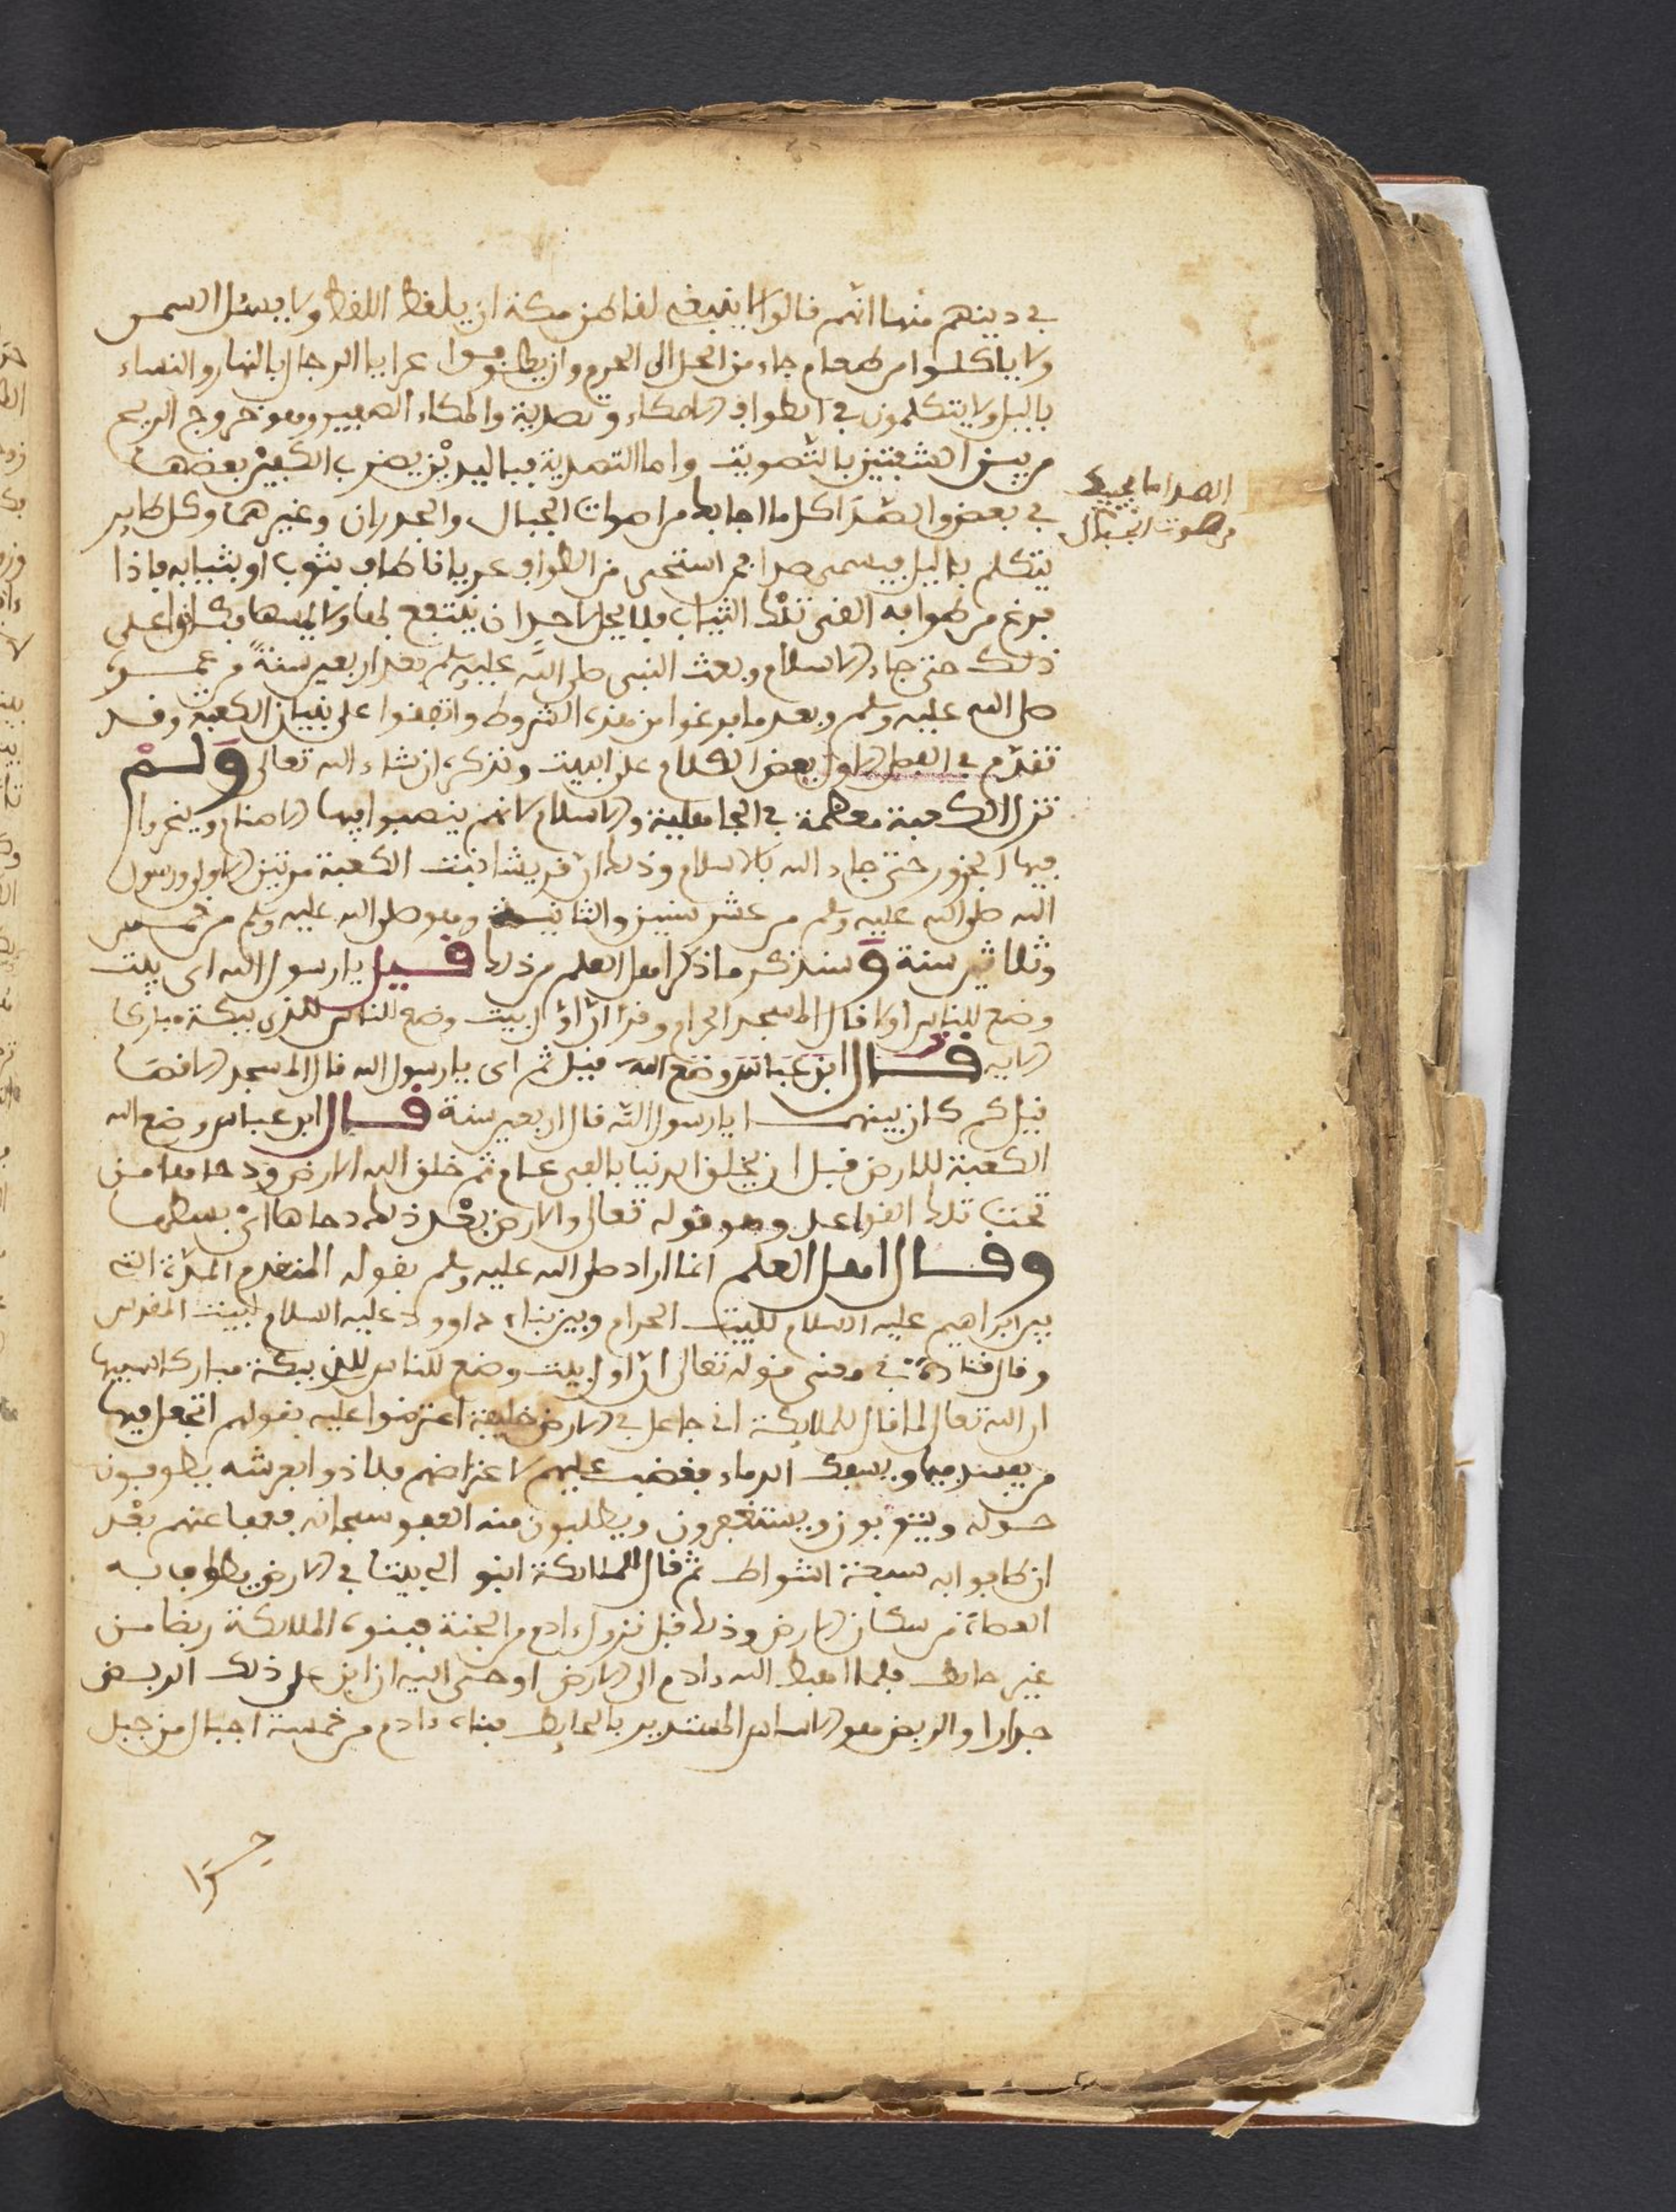 في دينهم منها انهم قالوا لا ينبغي لقاطن مكة ان يلفظ اللفظ ولا يسئل السمن
ولا ياكلوا من طعام جاء من الحل الى الحرم وان يطوفوا عرايا الرجال بالنهار والنساء
باليل ولا يتكلمون في الطواف الا مكاء وتصدية والمكاء الصفير وهو خروج الريح
من بين الشفتين بالتصويت واما التصدية فباليدين يضرب الكفين بعضها
في بعض والصدا كل ما اجابك من اصوات الجبال والجدران وغيرهما وكل طاير
يتكلم باليل فيسمى صدا فمن استحيى من الطواف عريانا طاف بثوب او بثيابه فاذا
فرغ من طوافه القى تلك الثياب فلا يحل لاحد ان ينتفع بها ولا يلبسها فكانوا على
ذلك حتى جاء الاسلام وبعث النبي صلى الله عليه وسلم بعد اربعين سنة من عمره
صلى الله عليه وسلم وبعد ما فرغوا من هذه الشروط واتفقوا على بنيان الكعبة وقد
تقدم في الفصل الاول بعض الكلام على البيت ونذكره ان شاء الله تعالى ولم
تزل الكعبة معظمة في الجاهلية والاسلام لانهم ينصبوا فيها الاصنام وينحروا
فيها الجزور حتى جاء الله بالاسلام وذلك ان قريشا بنت الكعبة مرتين الاولى ورسول
الله صلى الله عليه وسلم من عشر سنين والثانية وهو صلى الله عليه وسلم من خمس
وثلاثين سنة وسنذكر ما ذكر اهل العلم من ذلك قيل يا رسول الله اي بيت
وضع للناس اولا قال المسجد الحرام وقرا ان اول بيت وضع للناس للذي ببكة مباركا
الايه قال ابن عباس وضع الله قيل ثم اي يا رسول الله قال المسجد الاقصا
قيل كم كان بينهما يا رسول الله قال اربعين سنة قال ابن عباس وضع الله
الكعبة للارض قبل ان يخلق الدنيا بالفي عام ثم خلق الله الارض ودحاها من
تحت تلك القواعد وهو قوله تعالى والارض بعد ذلك دحاها اي بسطها
وقال اهل العلم انما اراد صلى الله عليه وسلم بقوله المتقدم المدة التي
بين ابراهيم عليه السلام للبيت الحرام وبين بناء داوود عليه السلام لبيت المقدس
وقال قتادة في معنى قوله تعالى ان اول بيت وضع للناس للذي ببكة مباركا سببها
ان الله تعالى لما قال للملايكة اني جاعل في الارض خليفة اعترضوا عليه بقولهم اتجعل فيها
من يفسد فيها ويسفك الدماء فغضب عليهم لاعتراضهم فلاذوا بعرشه يطوفون
حوله ويتوبون ويستغفرون ويطلبون منه العفو سبحانه فعفا عنهم بعد
ان طافوا به سبعة اشواط ثم قال للملائكة ابنو الي بيتا في الارض يطوف به
العصاة من سكان الارض وذلك قبل نزول ءادم من الجنة فبنوه الملايكة ربضا من
غير حايط فلما اهبط الله ءادم الى الارض اوحى اليه ان ابن على ذلك الربض
جدارا والربض هو الاساس المستدير بالحايط فبناه ءادم من خمسة اجبال من جبل
الصدا ما يجيبك
من صوت الجبال
حرا